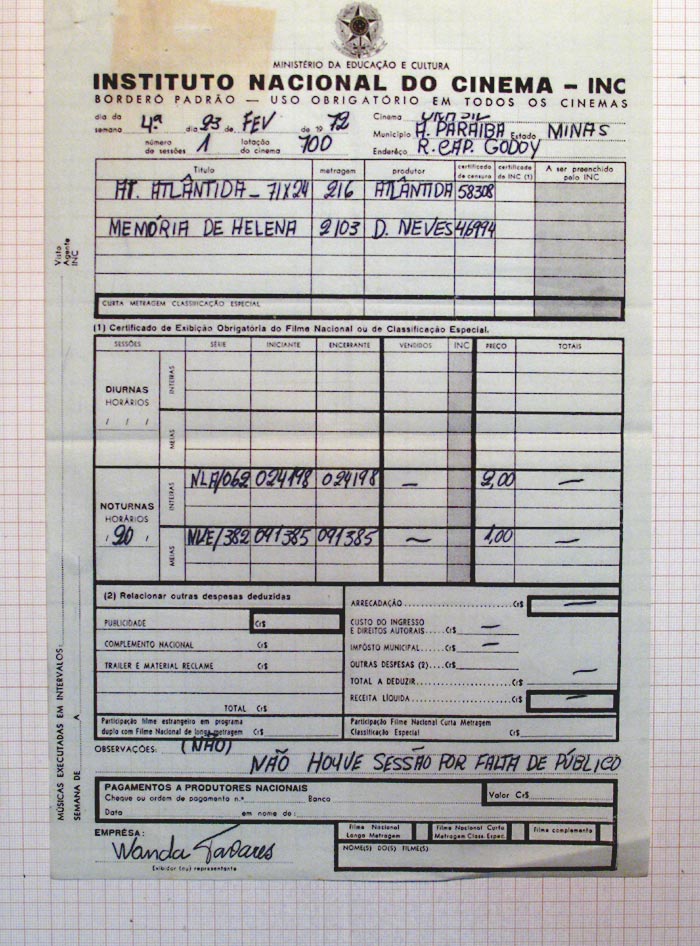 MINISTÉRIO DA EDUCAÇÃO E CULTURA
INSTITUTO NACIONAL DO CINEMA – INC
BORDERÔ PADRÃO — USO OBRIGATÓRIO EM TODOS OS CINEMAS
dia da semana 4ª dia 23 de FEV de 1972 Cinema BRASIL
número de sessões 1 lotação do cinema 700 Município A. PARAIBA Estado MINAS
Endereço R. CAP. GODOY
Título metragem produtor certificado de censura certificado de INC (1) A ser preenchido pelo INC
AT. ATLÂNTIDA – 71X24 216 ATLÂNTIDA 58308
MEMÓRIA DE HELENA 2103 D. NEVES 46994
Visto Agente INC
CURTA METRAGEM CLASSIFICAÇÃO ESPECIAL
(1) Certificado de Exibição Obrigatória do Filme Nacional ou de Classificação Especial.
SESSÕES SÉRIE INICIANTE ENCERRANTE VENDIDOS INC PREÇO TOTAIS
DIURNAS
HORÁRIOS
/ / /
INTEIRAS
MEIAS
NOTURNAS
HORÁRIOS
/ 20 /
INTEIRAS NLA/062 024198 024198 — 2,00 —
MEIAS NVE/382 091385 091385 — 1,00 —
(2) Relacionar outras despesas deduzidas
PUBLICIDADE Cr$
COMPLEMENTO NACIONAL Cr$
TRAILER E MATERIAL RECLAME Cr$
TOTAL Cr$
Participação filme estrangeiro em programa
duplo com Filme Nacional de longa metragem Cr$
ARRECADAÇÃO Cr$ —
CUSTO DO INGRESSO
E DIREITOS AUTORAIS Cr$ —
IMPÔSTO MUNICIPAL Cr$ —
OUTRAS DESPESAS (2) Cr$
TOTAL A DEDUZIR Cr$ —
RECEITA LÍQUIDA Cr$ —
Participação Filme Nacional Curta Metragem
Classificação Especial Cr$
OBSERVAÇÕES: (NÃO)
NÃO HOUVE SESSÃO POR FALTA DE PÚBLICO
PAGAMENTOS A PRODUTORES NACIONAIS
Cheque ou ordem de pagamento n.º Banco Valor Cr$
Data em nome de:
EMPRÊSA:
Wanda Tavares
Exibidor (ou) representante
Filme Nacional Longa Metragem Filme Nacional Curta Metragem Class. Espec. Filme complemento
NOME(S) DO(S) FILME(S)
MÚSICAS EXECUTADAS EM INTERVALOS:
SEMANA DE A